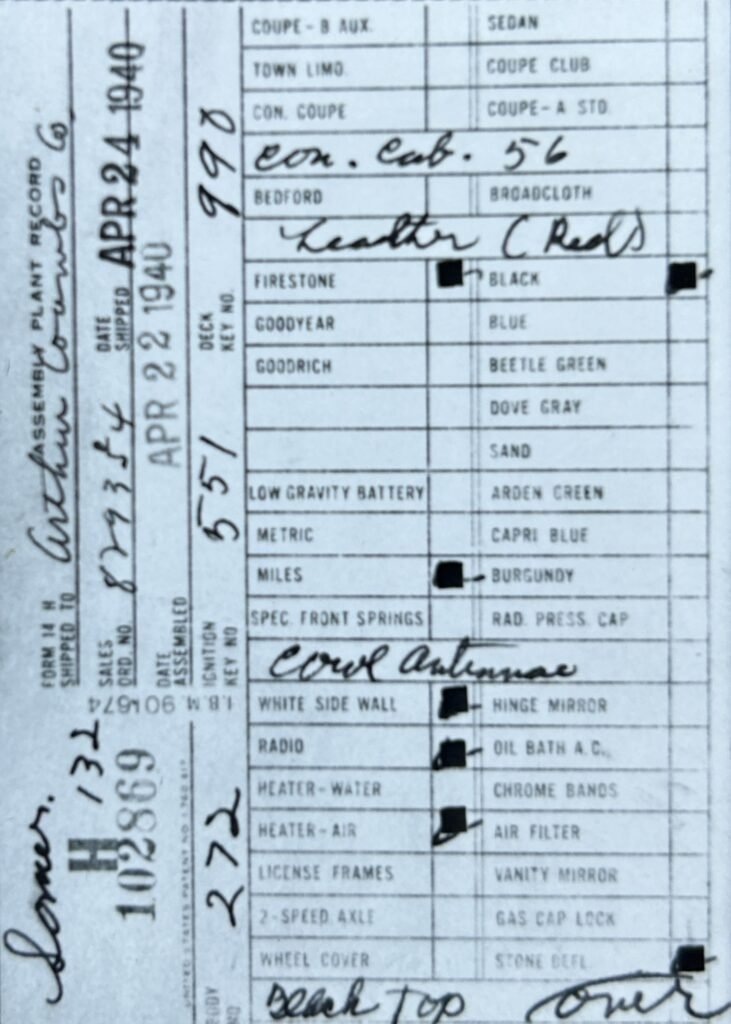 FORM 14 H ASSEMBLY PLANT RECORD
SHIPPED TO Arthur Coumbs Co.
SALES ORD. NO. 829354 DATE SHIPPED APR 24 1940
DATE ASSEMBLED APR 22 1940
IGNITION KEY NO 551 DECK KEY NO. 990
I.B.M. 901674
Somer.
H 132
102869
UNITED STATES PATENT NO.
BODY NO 272
COUPE - B AUX. SEDAN
TOWN LIMO. COUPE CLUB
CON. COUPE COUPE - A STD.
Con. Cab. 56
BEDFORD BROADCLOTH
Leather (Red)
FIRESTONE BLACK
GOODYEAR BLUE
GOODRICH BEETLE GREEN
DOVE GRAY
SAND
LOW GRAVITY BATTERY ARDEN GREEN
METRIC CAPRI BLUE
MILES BURGUNDY
SPEC. FRONT SPRINGS RAD. PRESS. CAP
Cowl Antennae
WHITE SIDE WALL HINGE MIRROR
RADIO OIL BATH A.C.
HEATER - WATER CHROME BANDS
HEATER - AIR AIR FILTER
LICENSE FRAMES VANITY MIRROR
2-SPEED AXLE GAS CAP LOCK
WHEEL COVER STONE DEFL.
Black Top Over